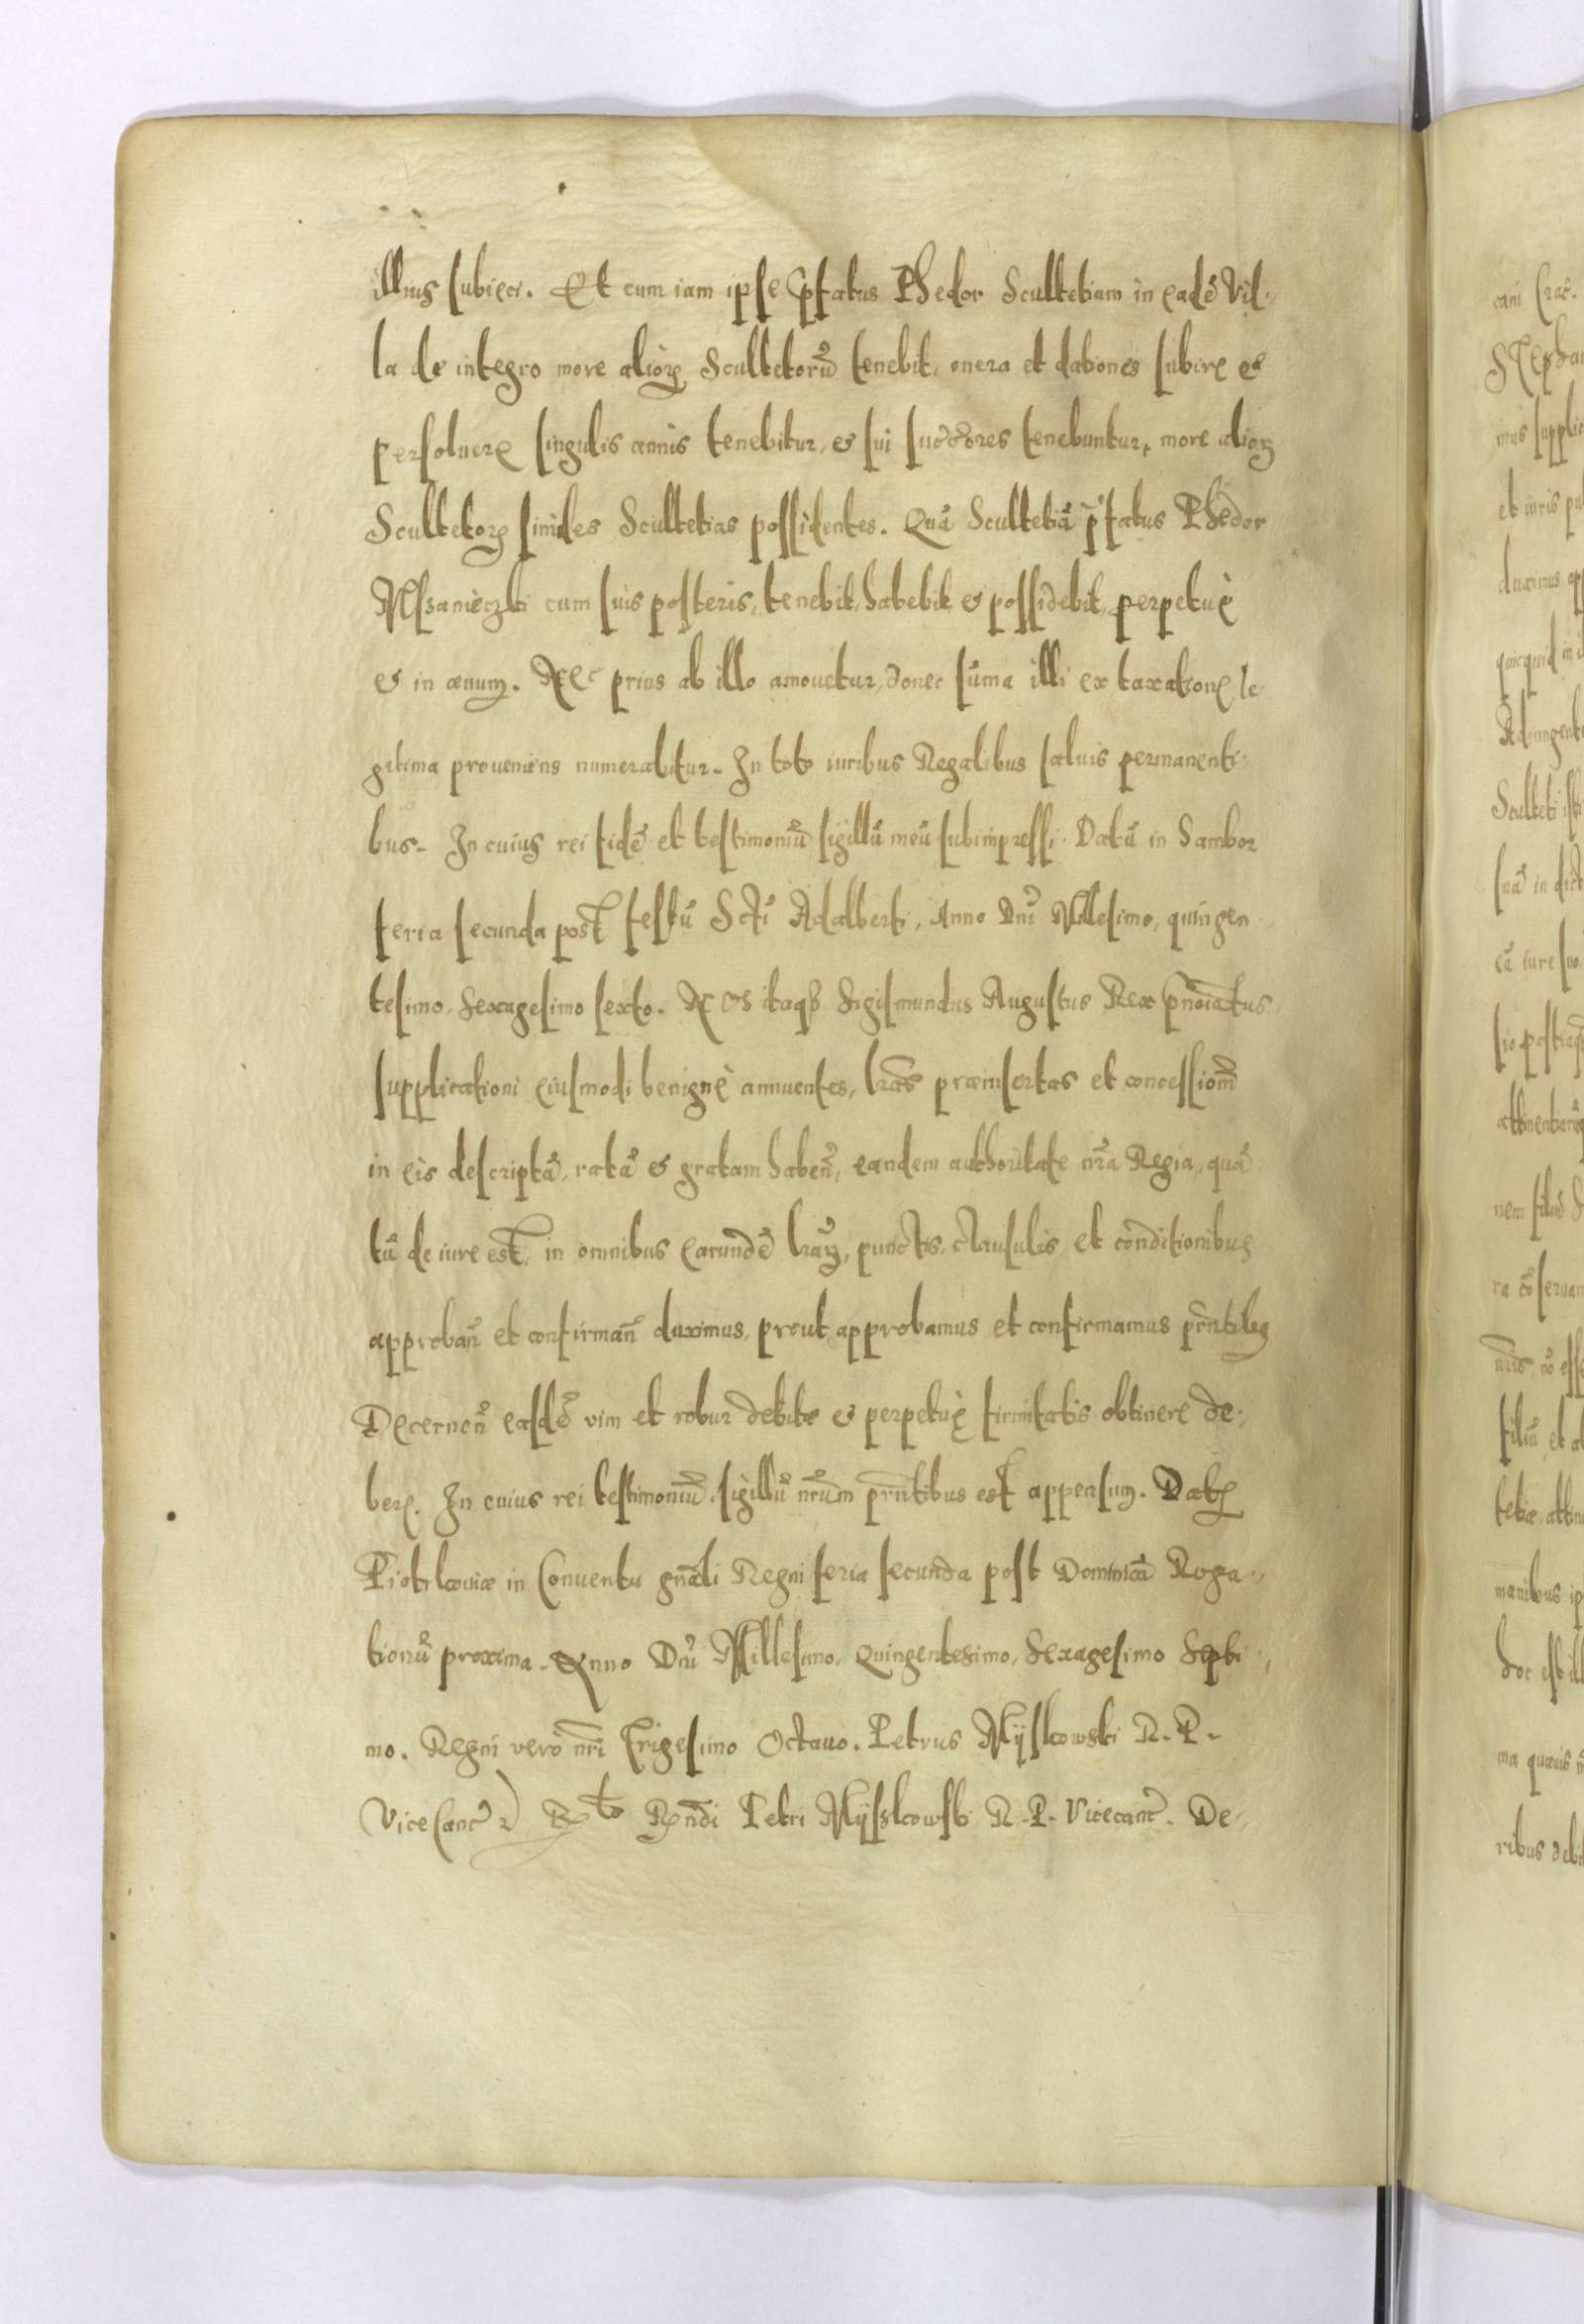 illius subieci. Et cum iam ipse p̃fatus Phedor Scultetiam in eadẽ Vil-
la de integro more alioꝝ Scultetorũ tenebit, onera et dationes subire et
persoluere singulis annis tenebitur, et sui successores tenebuntur, more alioꝝ
Scultetoꝝ similes Scultetias possidentes. Quã Scultetiã p̃fatus Phedor
cum suis posteris, tenebit, habebit et possidebit, perpetuè
et in æuum. Nec prius ab illo amouetur, donec sũma illi ex taxatione le-
gitima proueniens numerabitur. In toto iuribus Regalibus saluis permanenti-
bus. In cuius rei fidẽ et testimoniũ sigillũ meũ subimpressi. Datũ in Sambor
feria secunda post festũ Scti Adalberti, Anno Dni Millesimo, quingen-
tesimo, Sexagesimo sexto. Nos itaqȝ Sigismundus Augustus Rex p̃noĩatus,
supplicationi eiusmodi benignè annuentes, l̃ras præinsertas et concessionẽ
in eis descriptã, ratã et gratam habeñ, eandem authoritate nr̃a Regia, quã-
tũ de iure est, in omnibus earundẽ l̃raꝝ, punctis, clausulis, et conditionibus
approbañ et confirmañ duximus, prout approbamus et confirmamus pr̃ntibus
Decerneñ easdẽ vim et robur debitæ et perpetuę firmitatis obtinere de-
bere. In cuius rei testimoniũ, sigillũ nr̃um pr̃ntibus est appensum. Datę
Piotrkouiæ in Conuentu gnãli Regni feria secunda post Dominicã Roga-
tionũ proxima. Anno Dni Millesimo, Quingentesimo, Sexagesimo Septi-
mo. Regni verò nr̃i Trigesimo Octauo. Petrus Myszkowski R. P.
ViceCanc̃. Rto Rñdi Petri Myszkowski R. P. Vicecanc̃. De-